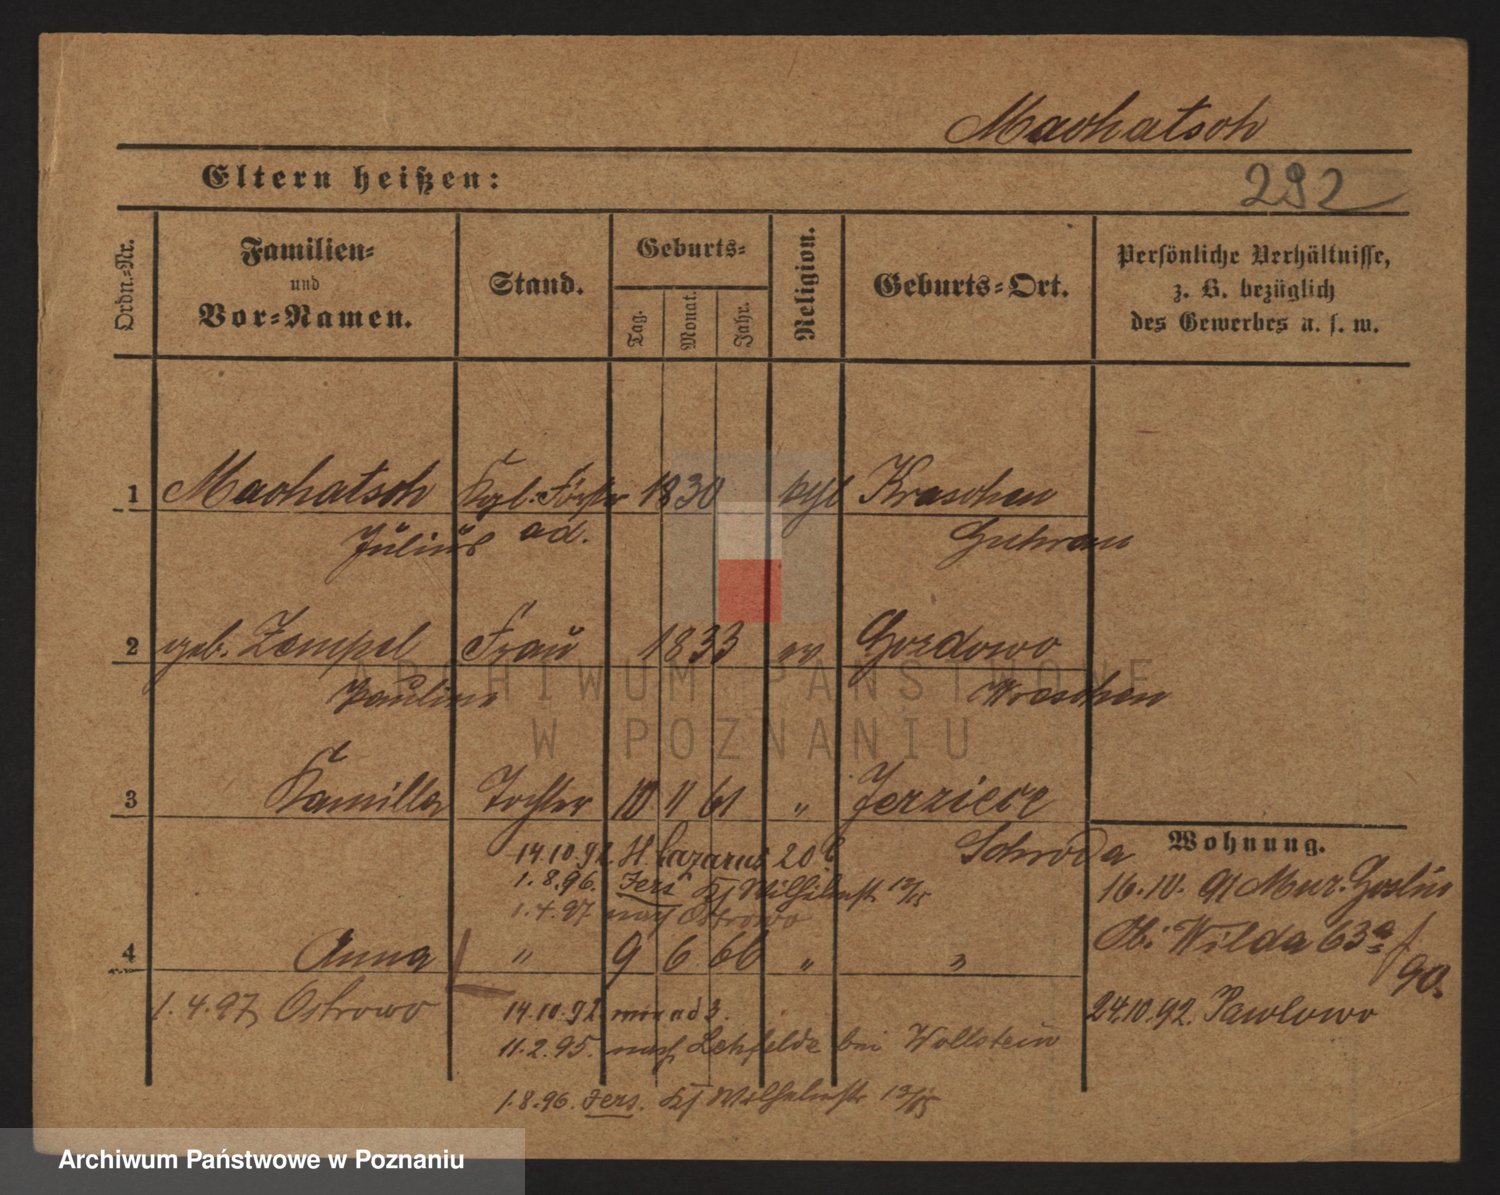 Machatsch
Eltern heißen:
292
Ordn.-Nr.
Familien-
und
Vor-Namen.
Stand.
Geburts-
Tag.
Monat.
Jahr.
Religion.
Geburts-Ort.
Persönliche Verhältnisse,
z. B. bezüglich
des Gewerbes u. s. w.
1 Machatsch Kgl. Förster 1830 Kraschen
Julius ad. Guhrau
2 geb. Zempel Frau 1833 ev Gozdowo
Pauline Wreschen
3 Kamilla Tochter 10 11 61 " Jerziece
Schroda
Wohnung.
14.10.92. St Lazarus 20
1.8.96. Jers Wilhelmstr
1.4.97 nach Ostrowo
16.10.91 Mur. Goslin
Wilda 63a
4 Anna " 9 6 66 " "
90.
1.4.97 Ostrowo
14.10.92
24.10.92. Pawlowo
11.2.95. nach Lehfelde bei Wollstein
1.8.96. Jers. Wilhelmstr
ARCHIWUM PAŃSTWOWE
W POZNANIU
Archiwum Państwowe w Poznaniu